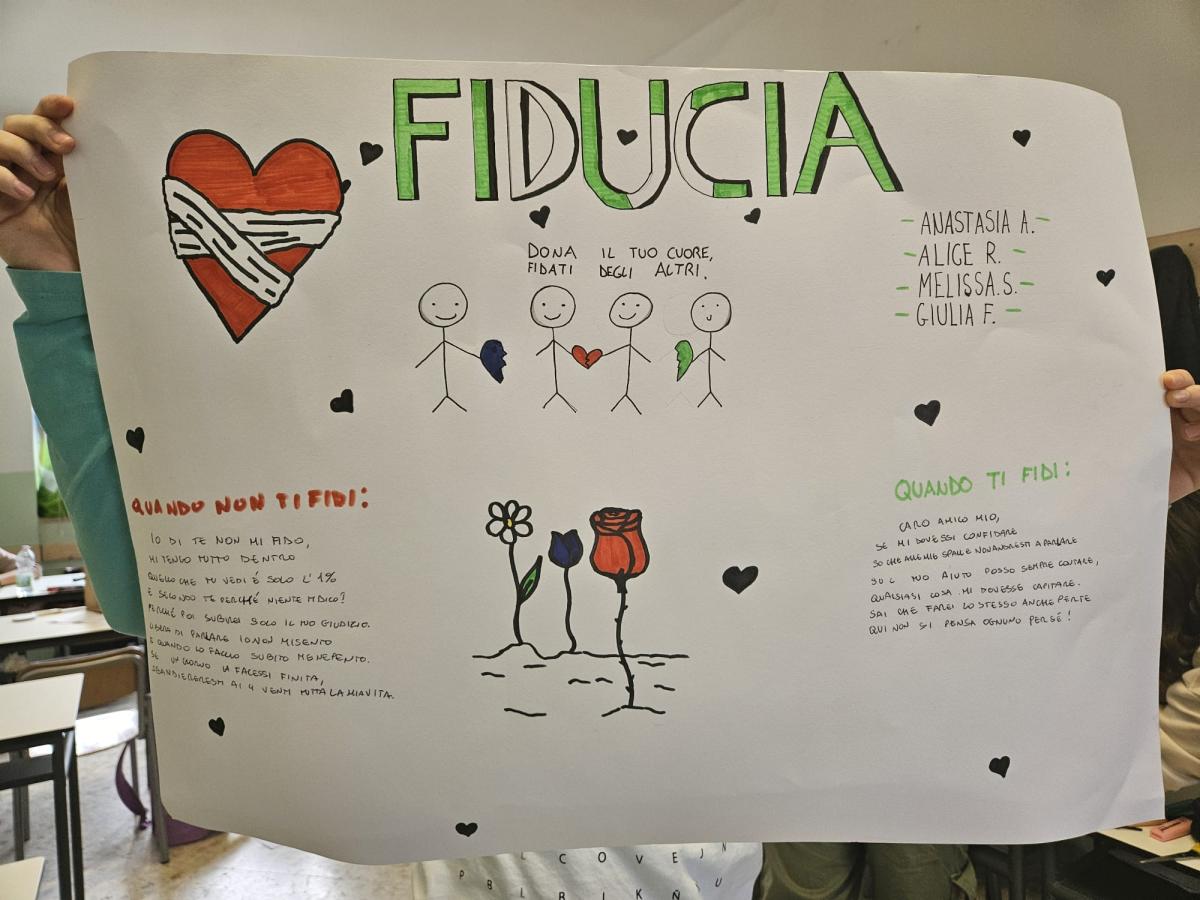 FIDUCIA
DONA IL TUO CUORE,
FIDATI DEGLI ALTRI.
- ANASTASIA A. -
- ALICE R. -
- MELISSA.S. -
- GIULIA F. -
QUANDO NON TI FIDI:
IO DI TE NON MI FIDO,
MI TENGO TUTTO DENTRO
QUELLO CHE TU VEDI É SOLO L'1%
E SECONDO TE PERCHÉ NIENTE TI DICO?
PERCHÉ POI SUBIREI SOLO IL TUO GIUDIZIO.
LIBERA DI PARLARE IO NON MI SENTO
E QUANDO LO FACCIO SUBITO ME NE PENTO.
SE UN GIORNO LA FACESSI FINITA,
AI 4 VENTI TUTTA LA MIA VITA.
QUANDO TI FIDI:
CARO AMICO MIO,
SE MI DOVESSI CONFIDARE
SO CHE ALLE MIE SPALLE NON ANDRESTI A PARLARE
SUL TUO AIUTO POSSO SEMPRE CONTARE,
QUALSIASI COSA MI DOVESSE CAPITARE.
SAI CHE FAREI LO STESSO ANCHE PER TE
QUI NON SI PENSA OGNUNO PER SÉ!
L C O V E J N
P B L B I K Ñ U